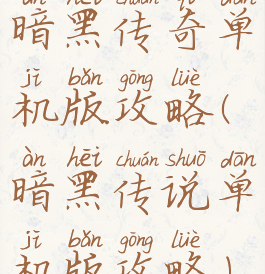 àn hēi chuán qí dān
暗黑传奇单
jī bǎn gōng lüè
机版攻略(
àn hēi chuán shuō dān
暗黑传说单
jī bǎn gōng lüè
机版攻略)